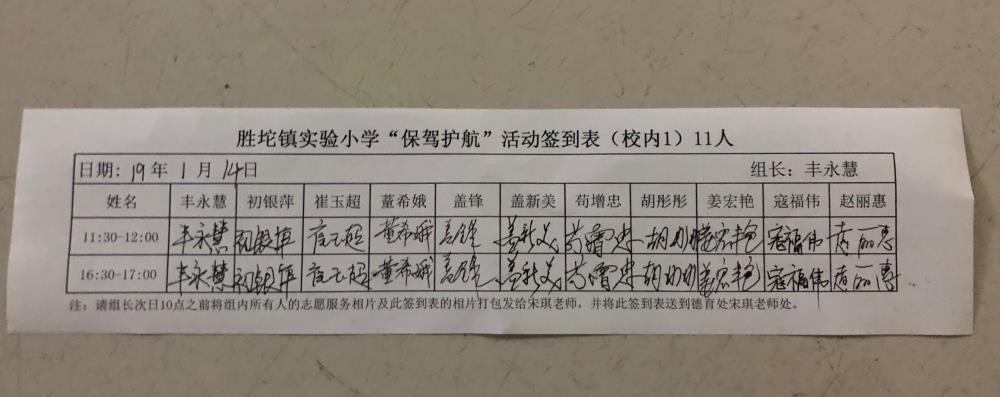 胜坨镇实验小学“保驾护航”活动签到表（校内1）11人
日期: 19 年 1 月 14 日 组长：丰永慧
姓名 丰永慧 初银萍 崔玉超 董希娥 盖锋 盖新美 苟增忠 胡彤彤 姜宏艳 寇福伟 赵丽惠
11:30-12:00 丰永慧 初银萍 崔玉超 董希娥 盖锋 盖新美 苟增忠 胡彤彤 姜宏艳 寇福伟 赵丽惠
16:30-17:00 丰永慧 初银萍 崔玉超 董希娥 盖锋 盖新美 苟增忠 胡彤彤 姜宏艳 寇福伟 赵丽惠
注：请组长次日10点之前将组内所有人的志愿服务相片及此签到表的相片打包发给宋琪老师，并将此签到表送到德育处宋琪老师处。